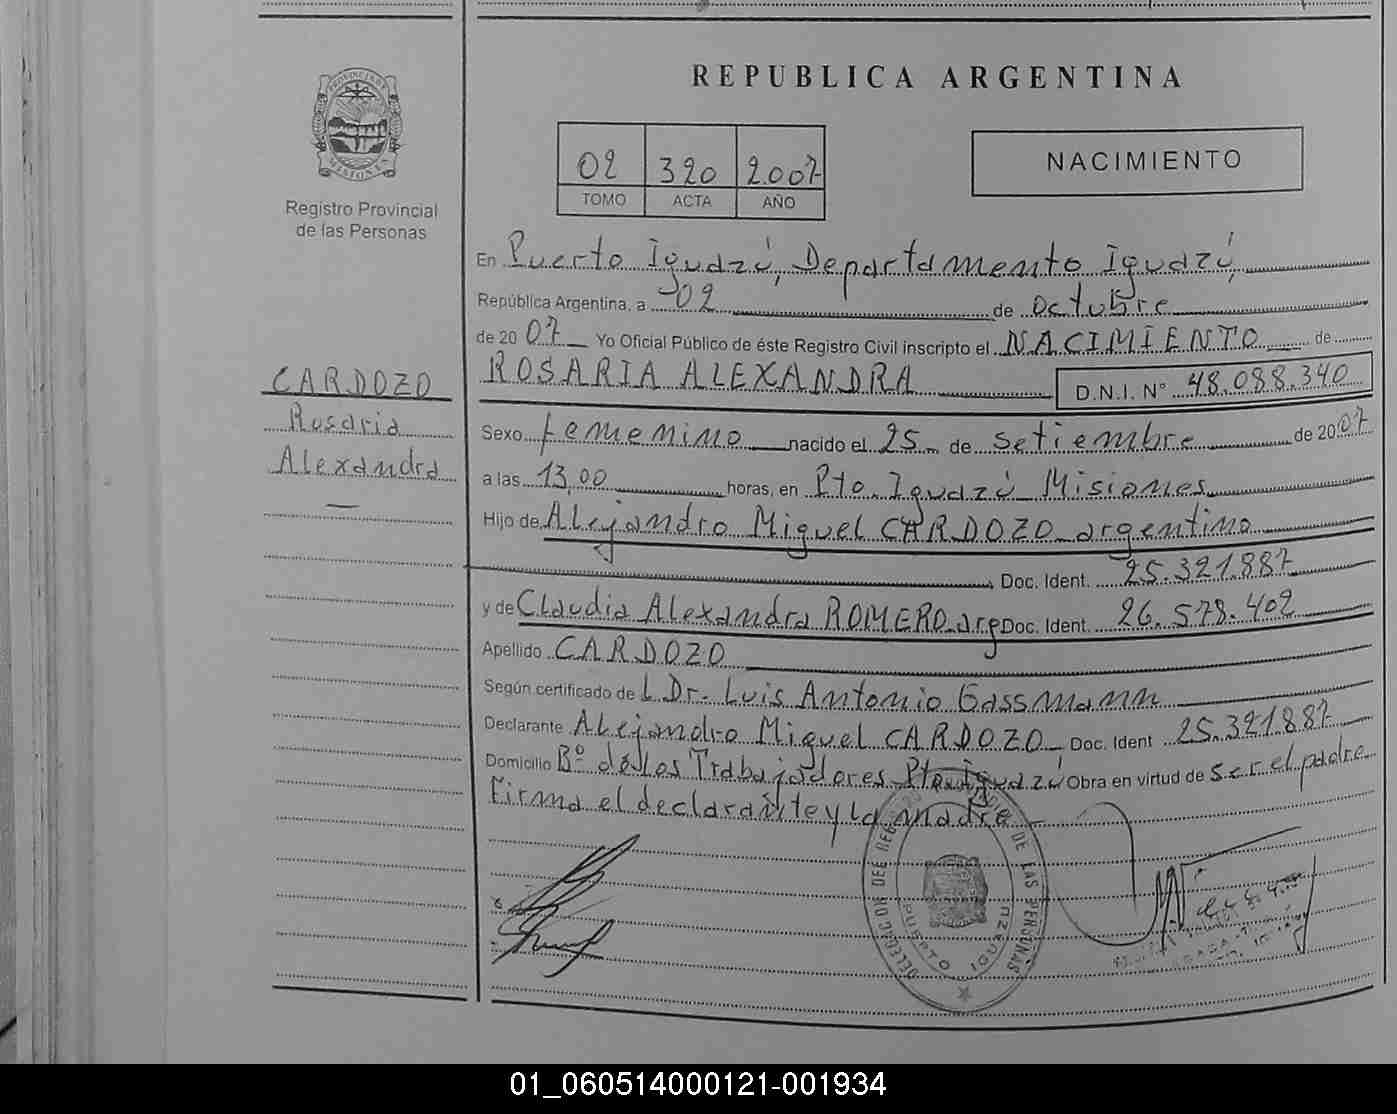 REPUBLICA ARGENTINA
PROVINCIA DE MISIONES
Registro Provincial
de las Personas
02 320 2.007
TOMO ACTA AÑO
NACIMIENTO
En Puerto Iguazú, Departamento Iguazú,
República Argentina, a 02 de octubre
de 20 07 Yo Oficial Público de éste Registro Civil inscripto el NACIMIENTO de
ROSARIA ALEXANDRA D.N.I. N° 48.088.340
CARDOZO
Rosaria
Alexandra
Sexo femenino nacido el 25 de setiembre de 20 07
a las 13,00 horas, en Pto. Iguazú Misiones
Hijo de Alejandro Miguel CARDOZO argentino
Doc. Ident. 25.321.887
y de Claudia Alexandra ROMERO arg Doc. Ident. 26.578.402
Apellido CARDOZO
Según certificado de L Dr. Luis Antonio Gassmann
Declarante Alejandro Miguel CARDOZO Doc. Ident 25.321.887
Domicilio B° de los Trabajadores Pto Iguazú Obra en virtud de ser el padre
Firma el declarante y la madre
DE LAS PERSONAS
PUERTO IGUAZU
01_060514000121-001934